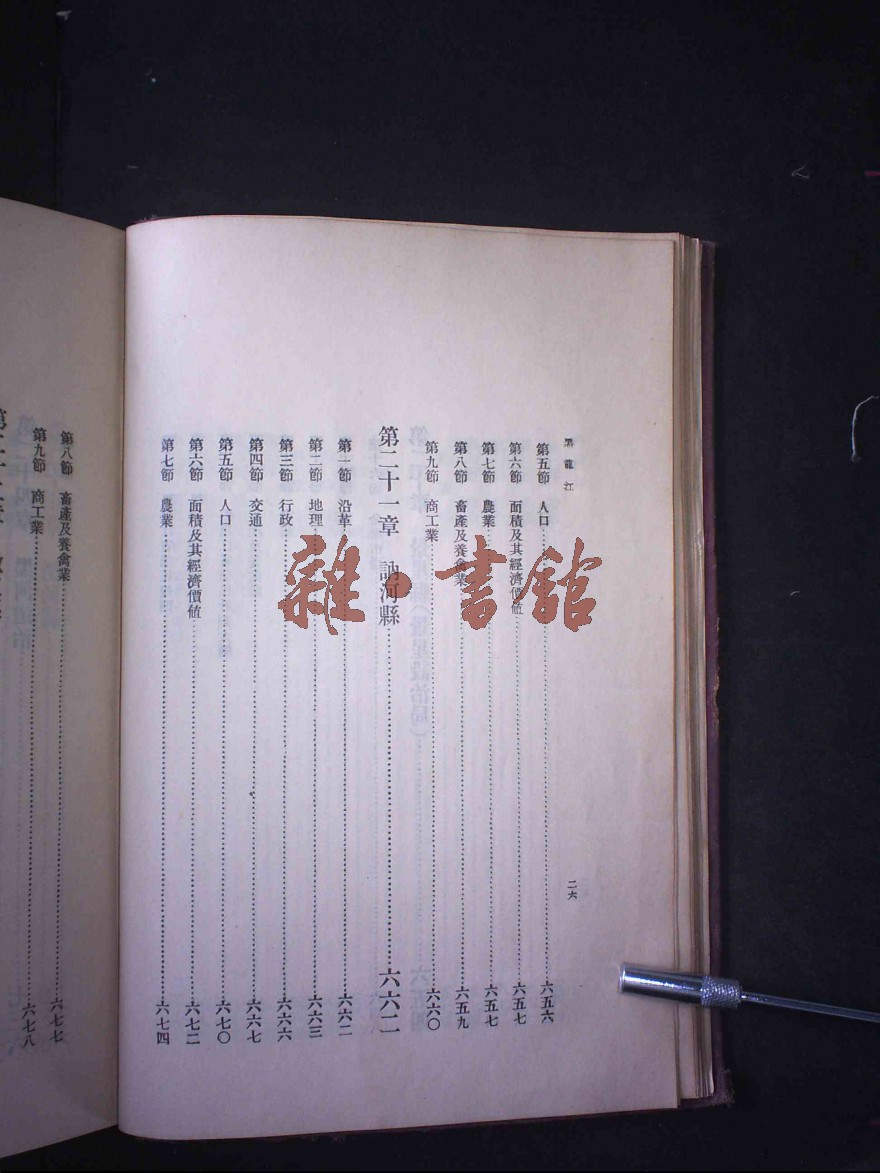 黑龍江
二六
第五節 人口 六五六
第六節 面積及其經濟價值 六五七
第七節 農業 六五七
第八節 畜產及養禽業 六五九
第九節 商工業 六六〇
第二十一章 訥河縣 六六二
第一節 沿革 六六二
第二節 地理 六六三
第三節 行政 六六六
第四節 交通 六六七
第五節 人口 六七〇
第六節 面積及其經濟價值 六七二
第七節 農業 六七四
第八節 畜產及養禽業 六七七
第九節 商工業 六七八
雜·書館